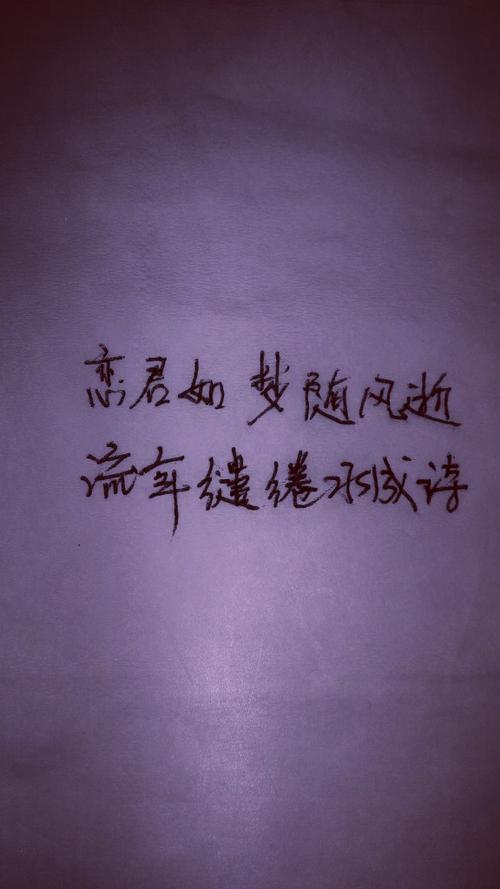 恋君如梦随风逝
流年缱绻水成诗